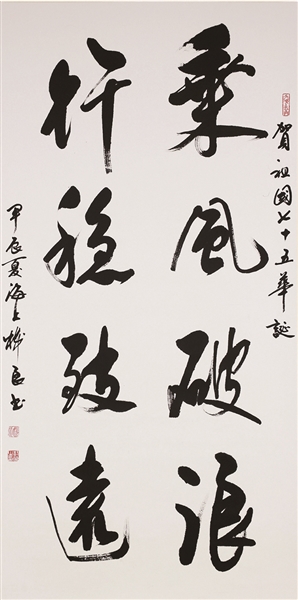 賀祖國七十五華誕
乘風破浪
行穩致遠
甲辰夏海上
良書